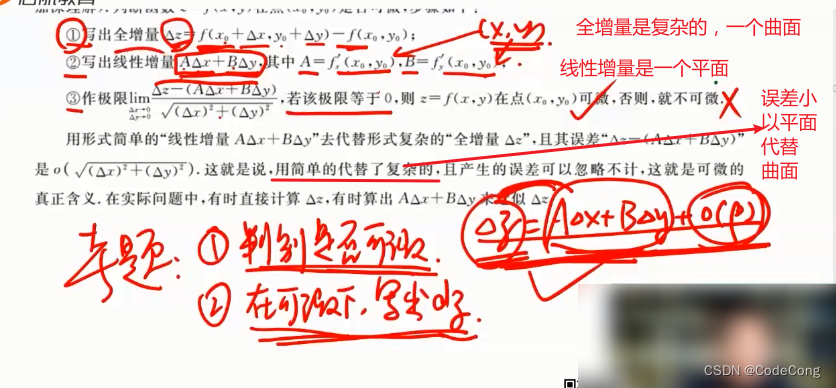 ①写出全增量Δz=f(x₀+Δx,y₀+Δy)-f(x₀,y₀);
(x,y).
全增量是复杂的，一个曲面
②写出线性增量AΔx+BΔy,其中A=f′ₓ(x₀,y₀),B=f′ᵧ(x₀,y₀);
线性增量是一个平面
③作极限lim Δx→0 Δy→0 Δz-(AΔx+BΔy) / √(Δx)²+(Δy)²,若该极限等于0,则z=f(x,y)在点(x₀,y₀)可微,否则,就不可微.
误差小
以平面
代替
曲面
用形式简单的“线性增量AΔx+BΔy”去代替形式复杂的“全增量Δz”,且其误差“Δz-(AΔx+BΔy)”
是o(√(Δx)²+(Δy)²).这就是说,用简单的代替了复杂的,且产生的误差可以忽略不计,这就是可微的
真正含义.在实际问题中,有时直接计算Δz,有时算出AΔx+BΔy来近似Δz
Δz=AΔx+BΔy+o(ρ)
考题:①判别是否可微.
②在可微下,写出dz.
CSDN @CodeCong